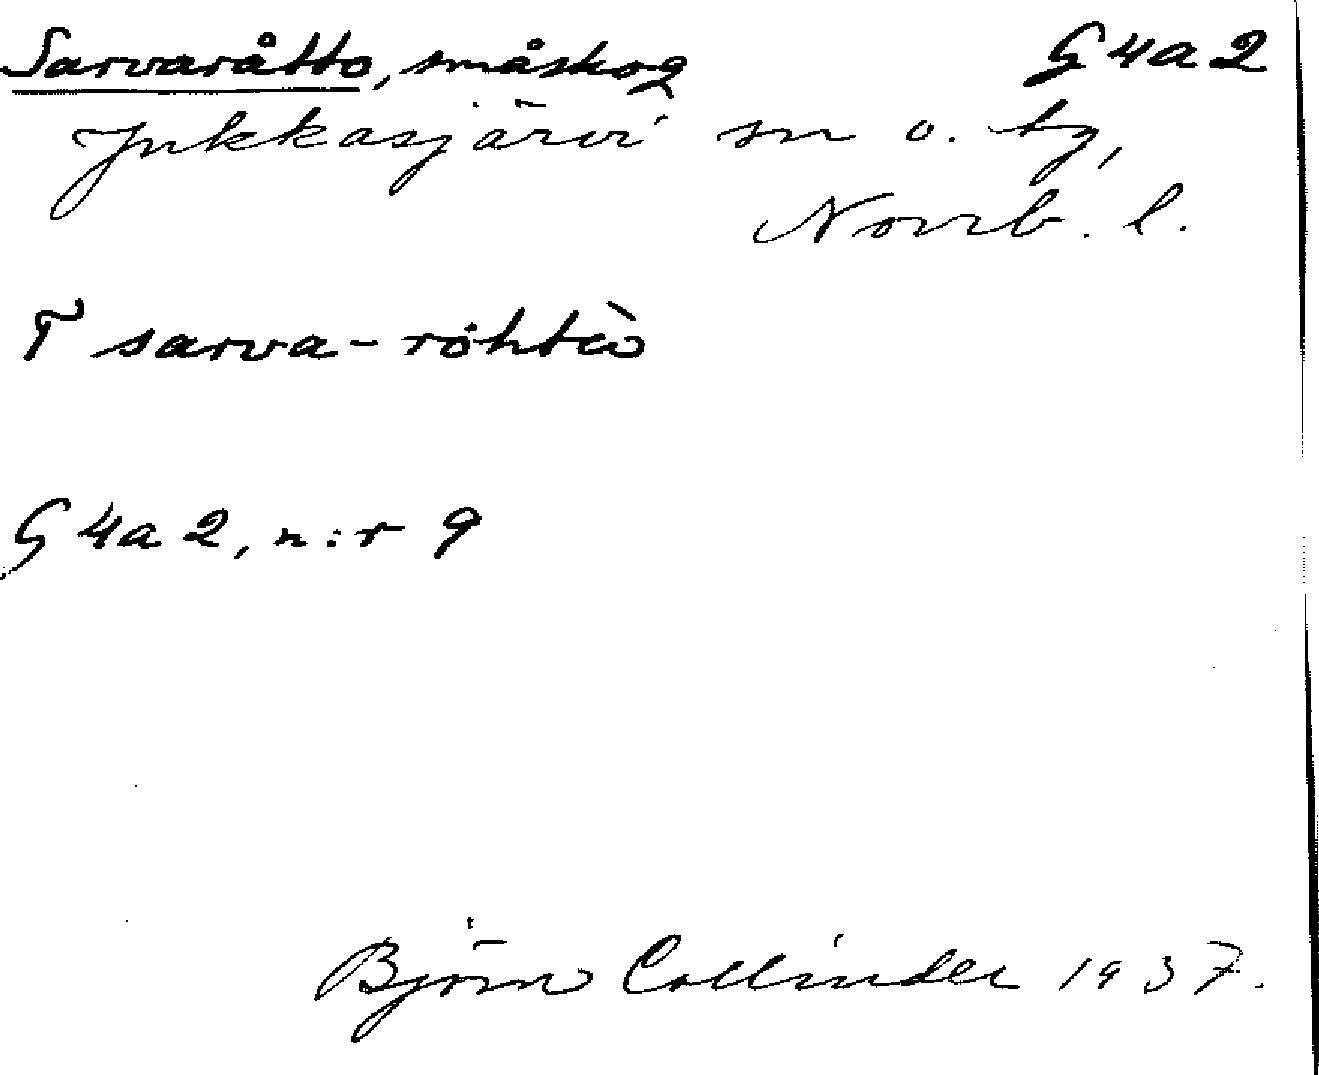 Sarvaråtto, småskog G 4a 2
Jukkasjärvi sn o. tg,
Norrb. l.
T sarva-röhtò
G 4a 2, n:r 9
Björn Collinder 1937.